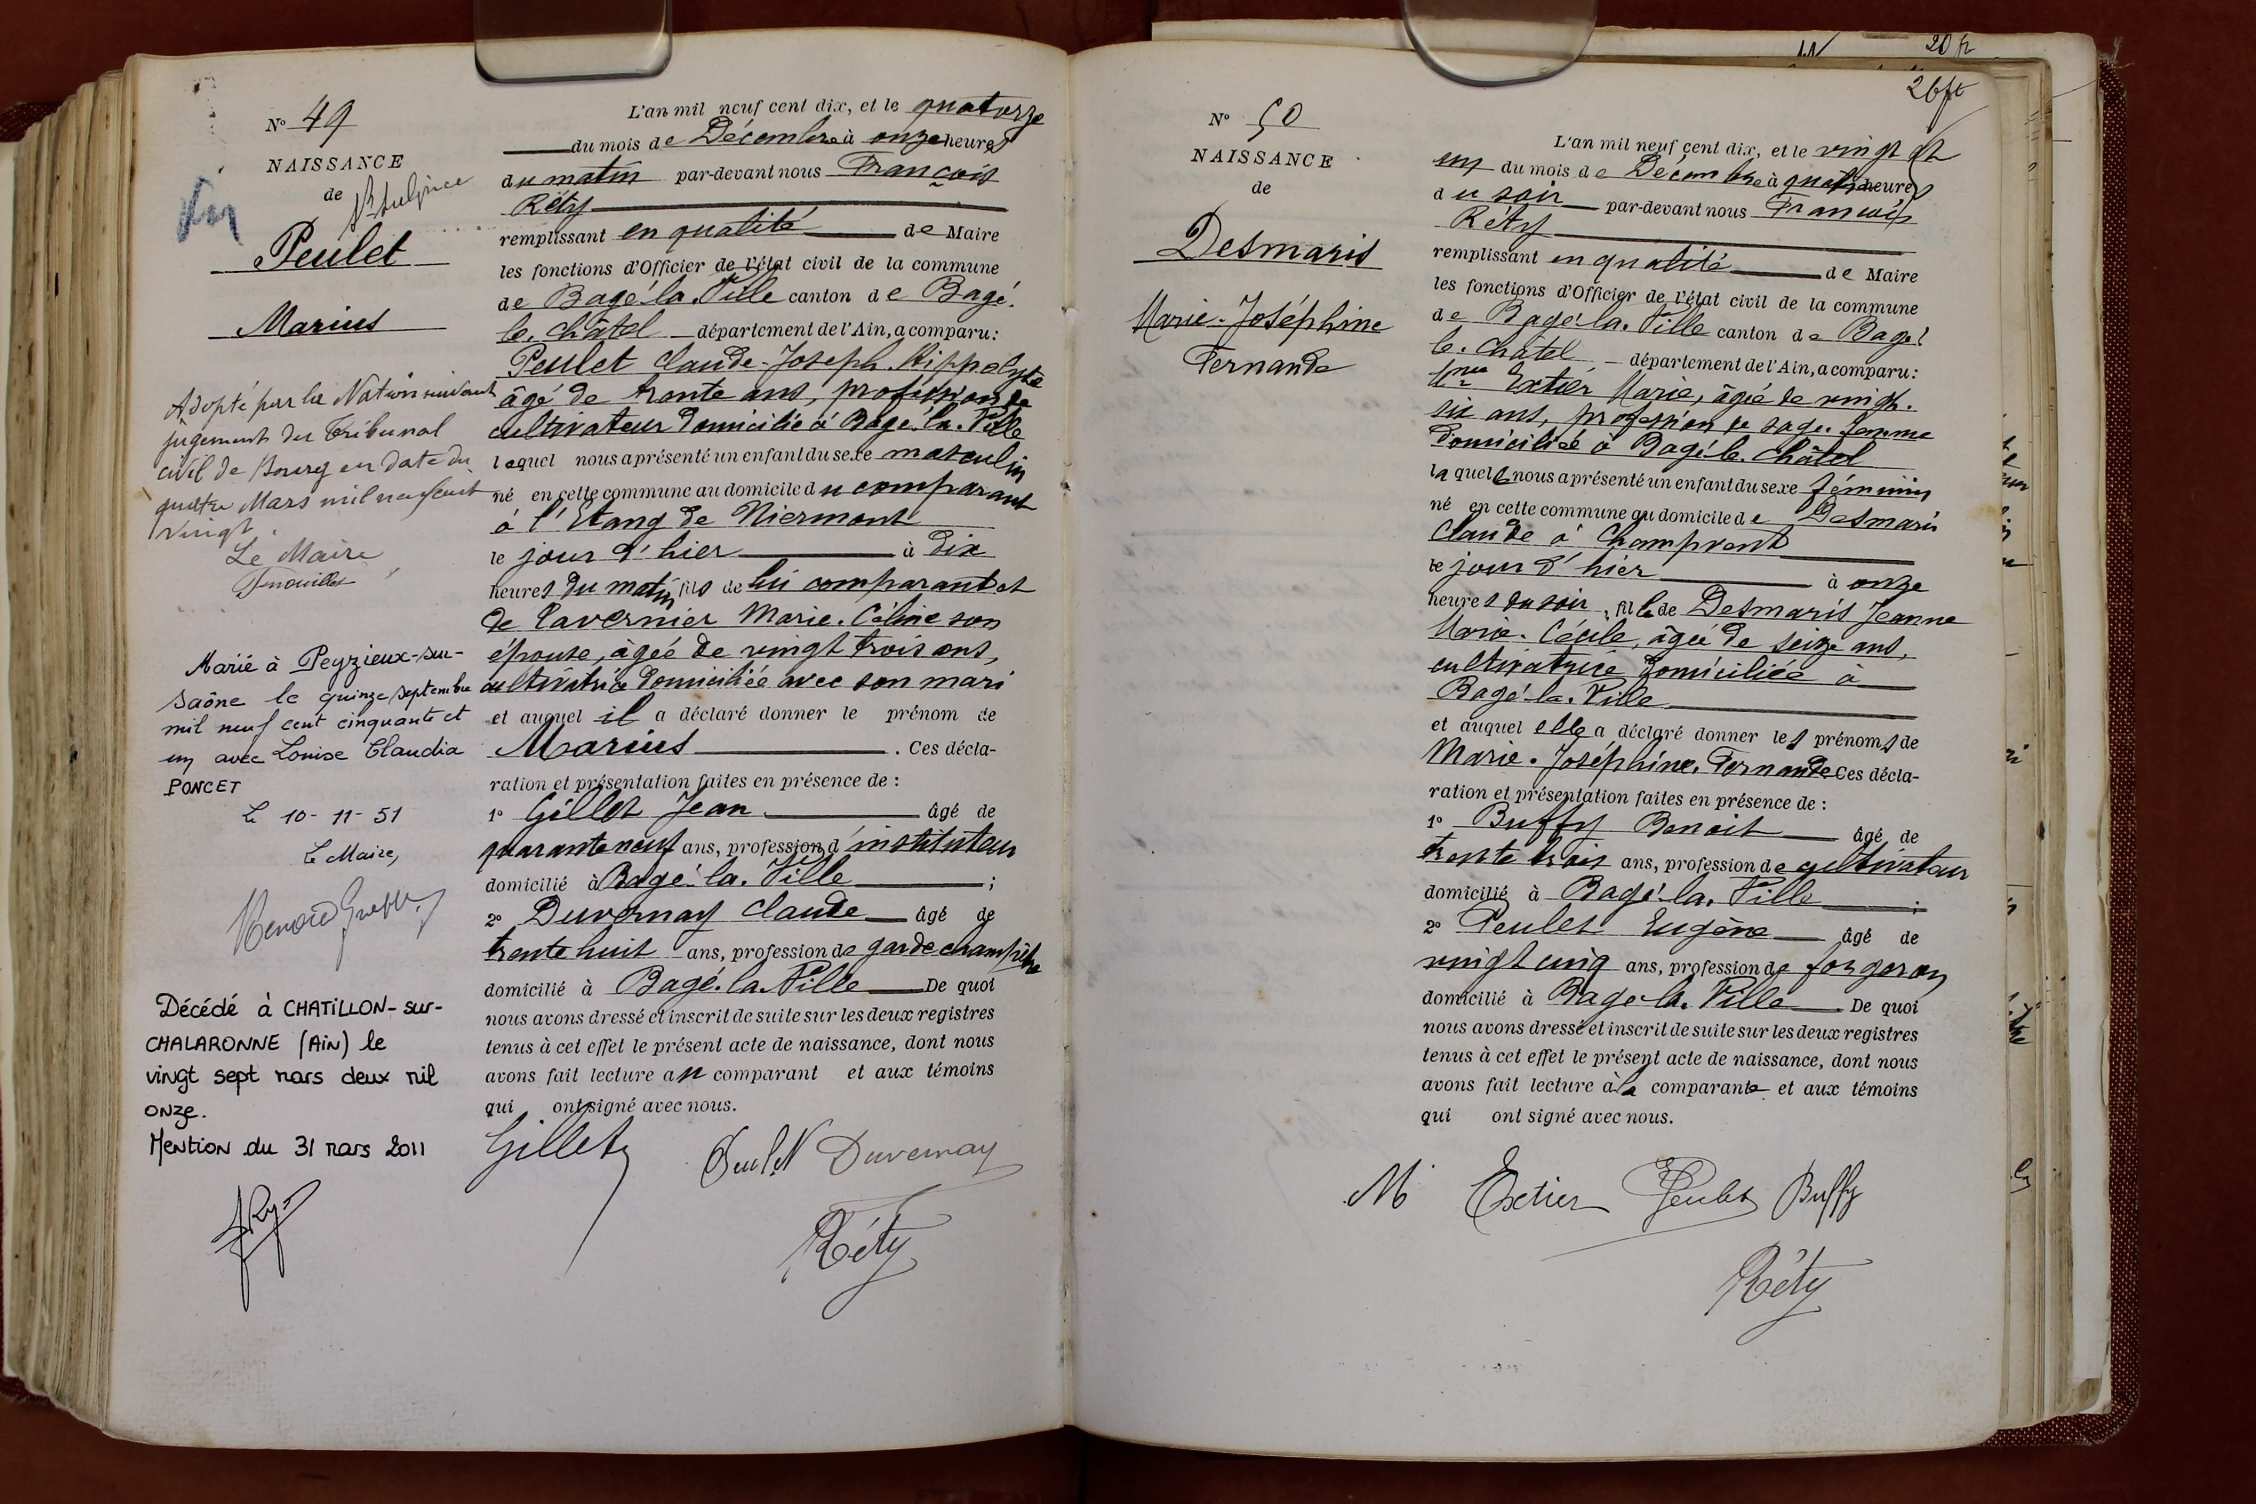 N° 49
NAISSANCE
de
Peulet
Marius
Adopté par la Nation suivant
jugement du Tribunal
civil de Bourg en date du
quatre Mars mil neuf cent
vingt.
Le Maire
Marié à Peyzieux-sur-
Saône le quinze septembre
mil neuf cent cinquante et
un avec Louise Claudia
PONCET
Le 10-11-51
Le Maire,
Décédé à CHATILLON-sur-
CHALARONNE (Ain) le
vingt sept mars deux mil
onze.
Mention du 31 mars 2011
L'an mil neuf cent dix, et le quatorze
du mois de Décembre à onze heures
du matin par-devant nous François
Réty
remplissant en qualité de Maire
les fonctions d'Officier de l'état civil de la commune
de Bagé-la-Ville canton de Bagé-
le-Châtel département de l'Ain, a comparu:
Peulet Claude-Joseph-Hippolyte
âgé de trente ans, profession de
cultivateur domicilié à Bagé-la-Ville
lequel nous a présenté un enfant du sexe masculin
né en cette commune au domicile du comparant
à l'Etang de Niermont
le jour d'hier à dix
heures du matin, fils de lui comparant et
de Tavernier Marie-Céline son
épouse, âgée de vingt trois ans,
cultivatrice domiciliée avec son mari
et auquel il a déclaré donner le prénom de
Marius. Ces décla-
ration et présentation faites en présence de :
1° Gillet Jean âgé de
quarante neuf ans, profession d'instituteur
domicilié à Bagé-la-Ville ;
2° Duvernay Claude âgé de
trente huit ans, profession de garde champêtre
domicilié à Bagé-la-Ville De quoi
nous avons dressé et inscrit de suite sur les deux registres
tenus à cet effet le présent acte de naissance, dont nous
avons fait lecture au comparant et aux témoins
qui ont signé avec nous.
Gillet Peulet Duvernay
Réty
20 ft
26 ft
N° 50
NAISSANCE
de
Desmaris
Marie-Joséphine
Fernande
L'an mil neuf cent dix, et le vingt et
un du mois de Décembre à quatre heures
du soir par-devant nous François
Réty
remplissant en qualité de Maire
les fonctions d'Officier de l'état civil de la commune
de Bagé-la-Ville canton de Bagé-
le-Châtel département de l'Ain, a comparu:
Mme Extier Marie, âgée de vingt-
six ans, profession de sage-femme
domiciliée à Bagé-le-Châtel
laquelle nous a présenté un enfant du sexe féminin
né en cette commune au domicile de Desmaris
Claude à Champvent
le jour d'hier à onze
heures du soir, fille de Desmaris Jeanne
Marie-Cécile, âgée de seize ans,
cultivatrice domiciliée à
Bagé-la-Ville
et auquel elle a déclaré donner les prénoms de
Marie-Joséphine-Fernande Ces décla-
ration et présentation faites en présence de :
1° Buffy Benoit âgé de
trente trois ans, profession de cultivateur
domicilié à Bagé-la-Ville ;
2° Peulet Eugène âgé de
vingt cinq ans, profession de forgeron
domicilié à Bagé-la-Ville De quoi
nous avons dressé et inscrit de suite sur les deux registres
tenus à cet effet le présent acte de naissance, dont nous
avons fait lecture à la comparante et aux témoins
qui ont signé avec nous.
M Extier Peulet Buffy
Réty